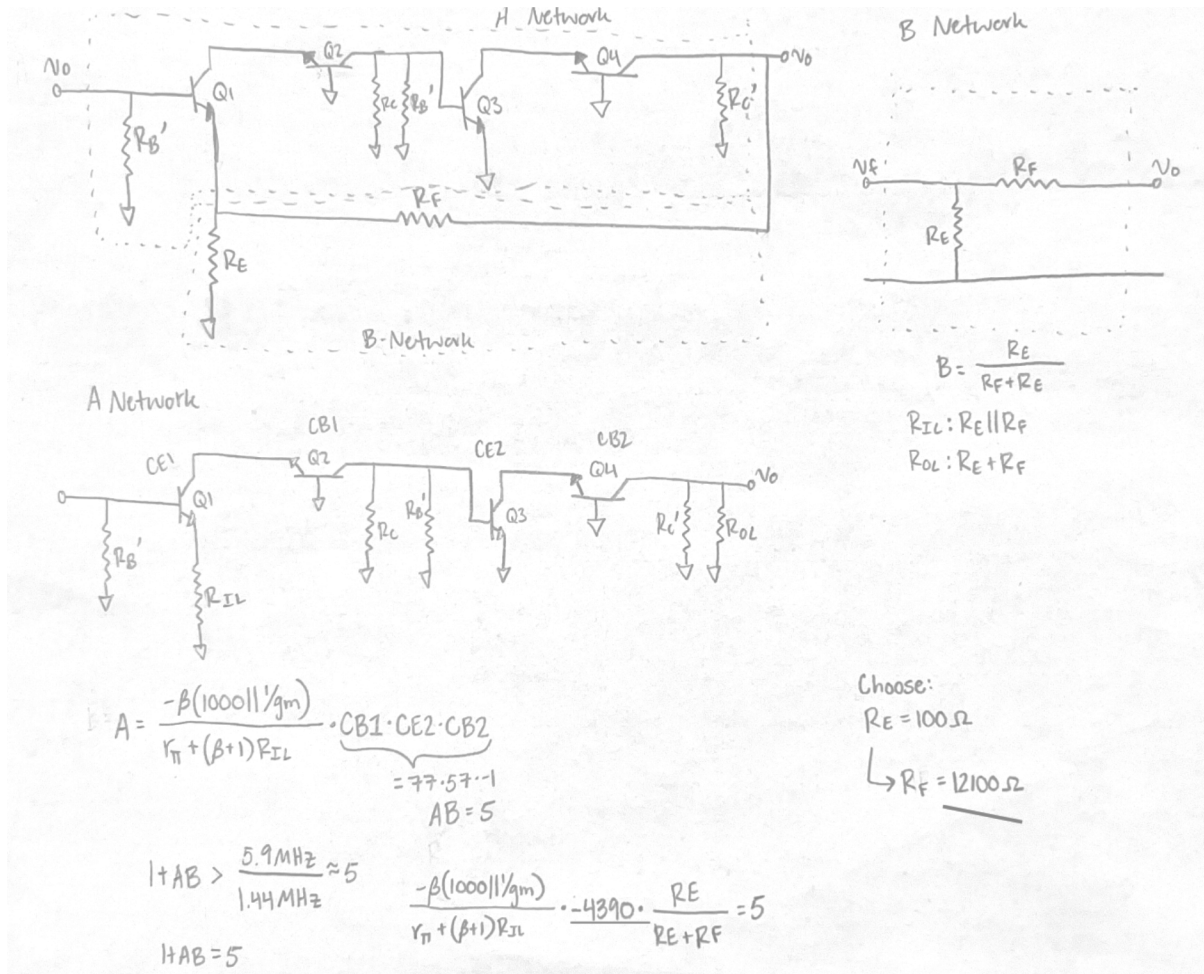 A Network
B Network
Vo
Q1
Q2
RC
RB'
Q3
Q4
RC'
Vo
RB'
RF
RE
B-Network
Vf
RF
Vo
RE
B = RE / RF+RE
RIL: RE||RF
ROL: RE+RF
A Network
CE1
CB1
CE2
CB2
Q1
Q2
RC
RB'
Q3
Q4
RC'
ROL
Vo
RB'
RIL
A = -β(1000||1/gm) / rπ+(β+1)RIL · CB1·CE2·CB2
=77·57·-1
AB=5
1+AB > 5.9MHz / 1.44MHz ≈5
1+AB=5
-β(1000||1/gm) / rπ+(β+1)RIL · -4390 · RE / RE+RF = 5
Choose:
RE = 100Ω
↳ RF = 12100Ω